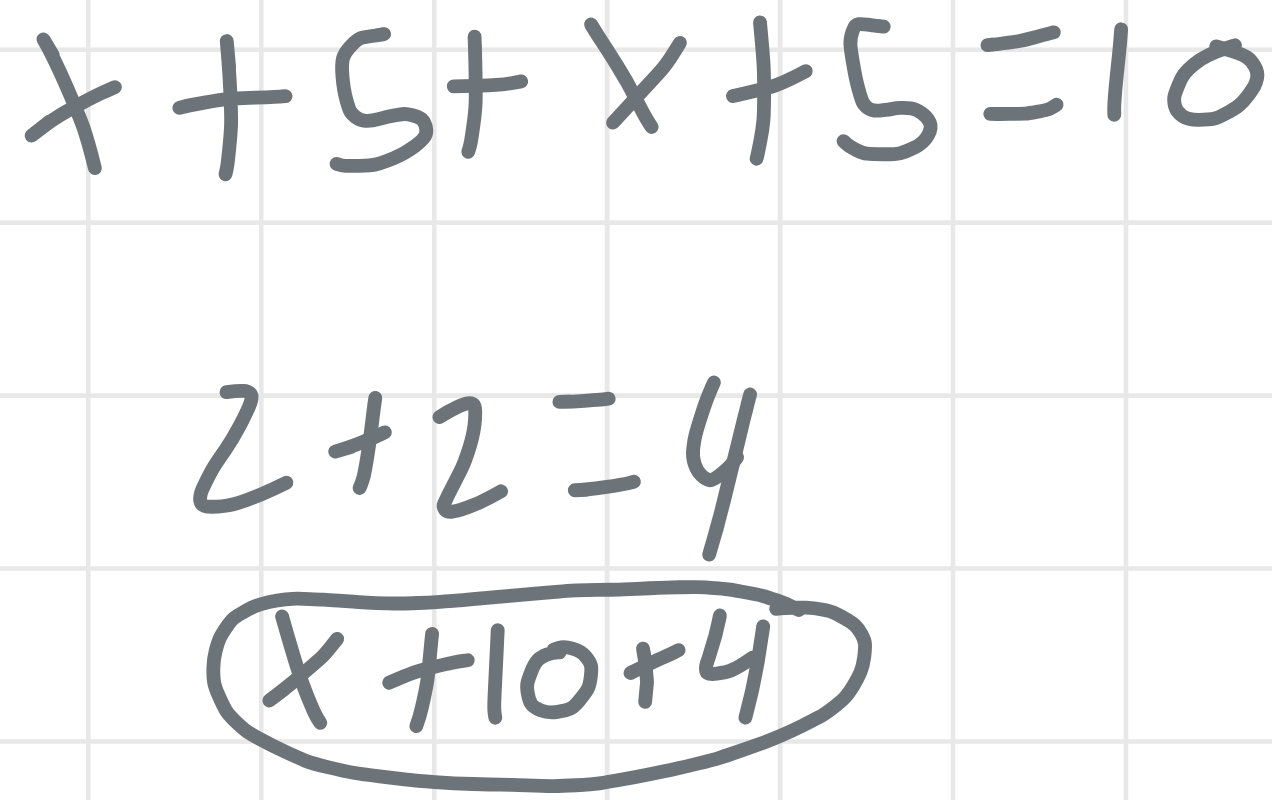 x + 5 + x + 5 = 10
2 + 2 = 4
x + 10 + 4